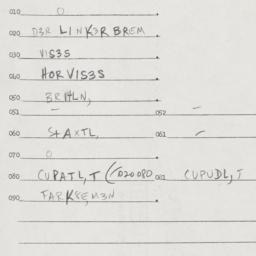 010 0
020 D3R LINK3R BREM
030 VIS3S
040 HORVIS3S
050
051 – 052 –
060 StAXTL, 061 –
070 0
080 CUPATL, T (020 080 081 CUPUDL, T
090